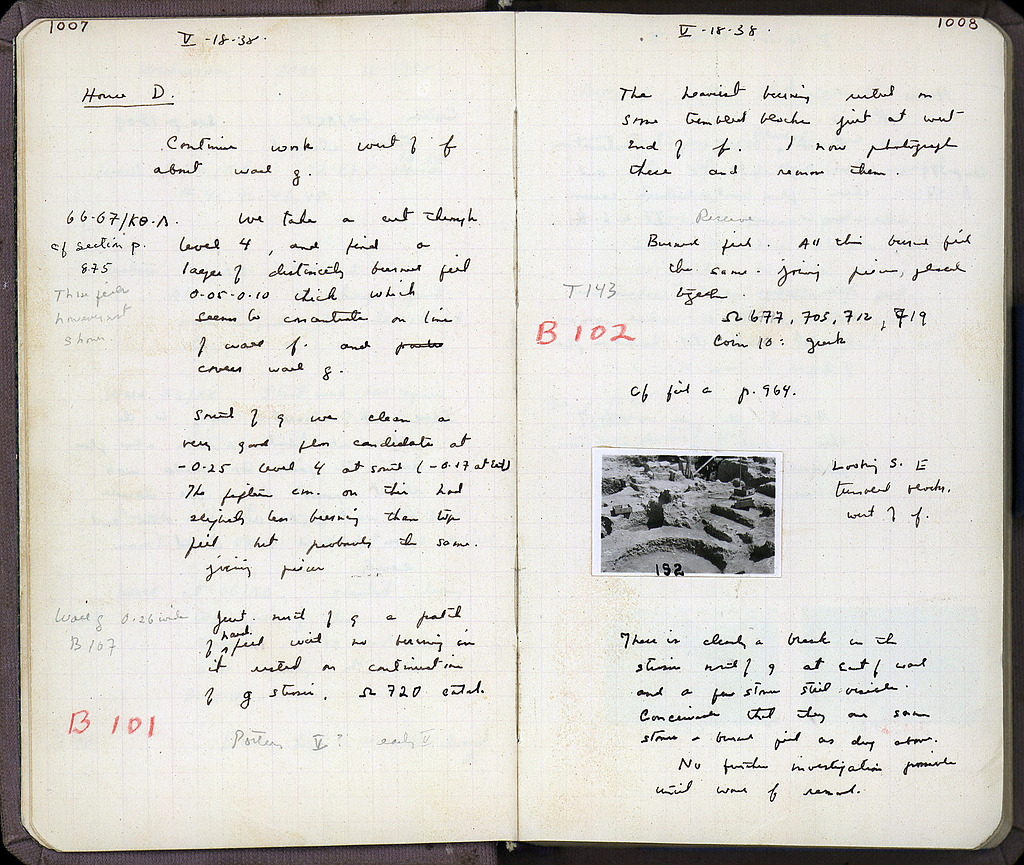 1007
V -18-38.
House D.
Continue work west of f
about wall g.
66-67/ΚΘ-Λ. We take a cut through
cf section p. level 4, and find a
875 layer of distinctly burned fill
This fill 0.05-0.10 thick which
however not seems to concentrate on line
shown of wall f. and
covers wall g.
South of g we clean a
very good floor candidate at
-0.25 level 4 at south (-0.17 at East)
The fifteen cm. on this had
slightly less burning than top
fill but probably the same.
joining pieces
Wall g 0.26 wide Just north of g a patch
B 107 of hard fill with no burning in
it rested on continuation
of g stones. Ω 720 catal.
B 101
Pottery V? early V
1008
V -18-38.
The heaviest burning rested on
some tumbled blocks just at west
end of f. I now photograph
these and remove them.
Receive
Burned fill. All this burned fill
the same. joining pieces, placed
T 143 together.
B 102
Ω 677, 705, 712, 719
Coin 10: greek
cf fill a p. 964.
192
Looking S. E
tumbled blocks.
west of f.
There is clearly a break in the
stones north of g at East of wall
and a few stones still visible.
Conceivable that they are same
stones a burned fill as dug above.
No further investigation possible
until wall f removed.